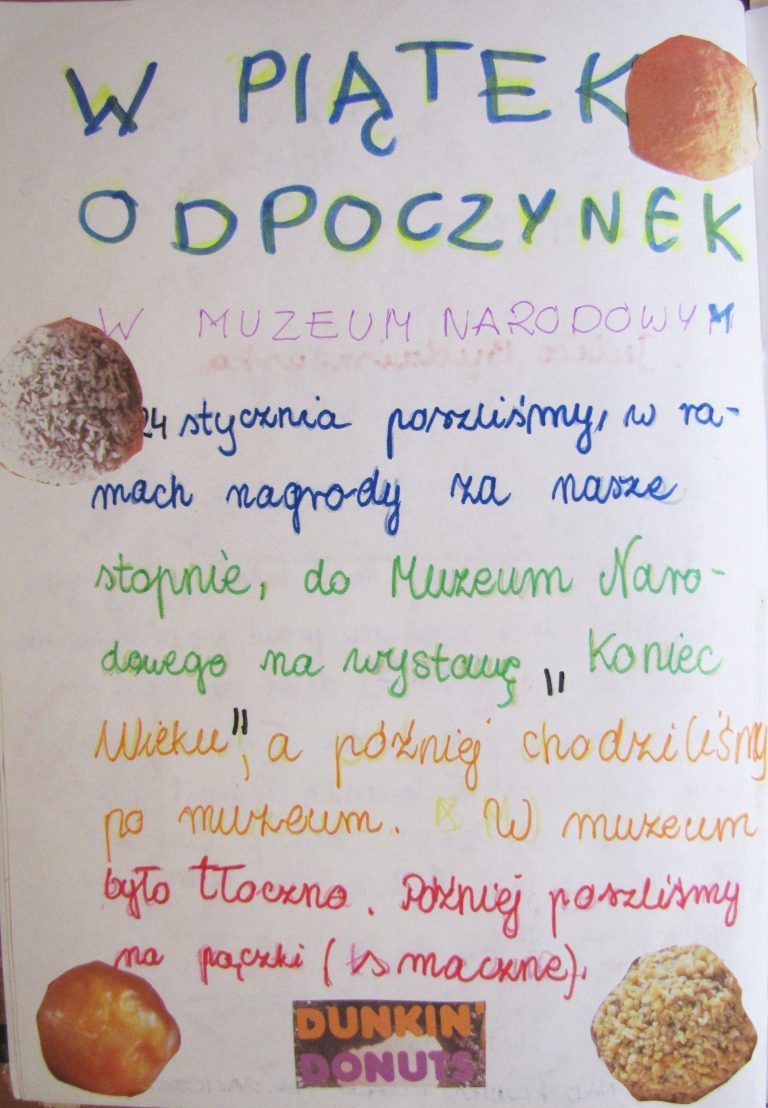 W PIĄTEK
ODPOCZYNEK
W MUZEUM NARODOWYM
24 stycznia poszliśmy, w ra-
mach nagrody za nasze
stopnie, do Muzeum Naro-
dowego na wystawę „Koniec
Wieku", a później chodziliśmy
po muzeum. W muzeum
było tłoczno. Później poszliśmy
na pączki (smaczne).
DUNKIN'
DONUTS